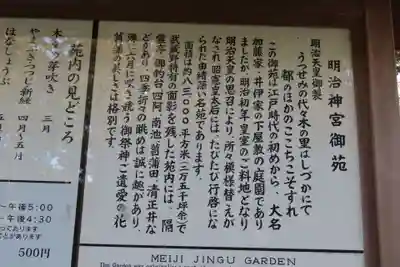 明治神宮御苑
明治天皇御製
うつせみの代々木の里はしづかにて
都のほかのここちこそすれ
この御苑は江戸時代の初めから、大名
加藤家・井伊家の下屋敷の庭園であり
ましたが、明治初年皇室のご料地となり
明治天皇の思召により、所々模様替えが
なされ昭憲皇太后には、たびたび行啓にな
られた由緒深い名苑であります。
面積は約八三〇〇〇平方米(二万五千坪余)で
武蔵野特有の面影を残した苑内には、隔
雲亭、御釣台、四阿、南池、菖蒲田、清正井な
どあり、四季折々の眺めは誠に趣があり、
殊に六月に咲き競う御祭神ご遺愛の花
菖蒲の美しさは格別です。
苑内の見どころ
木々の芽吹き 三月
やまぶきつつじ新緑 四月~五月
はなしょうぶ
~午後5:00
~午後4:30
500円
MEIJI JINGU GARDEN